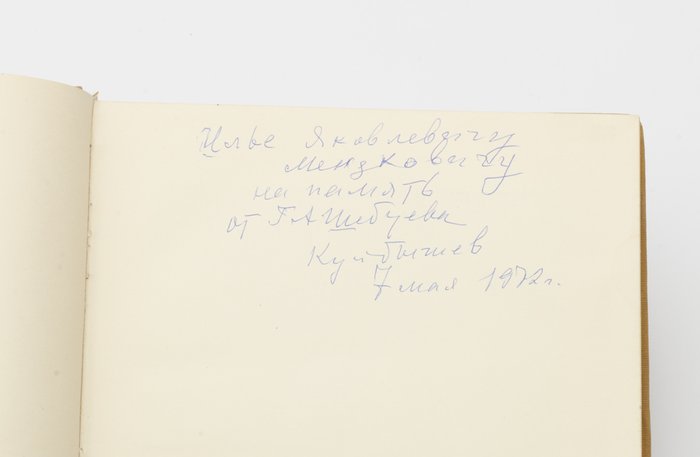 Илье Яковлевичу
Мендковичу
на память
от Г А Шибуева
Куйбышев
7 мая 1972 г.